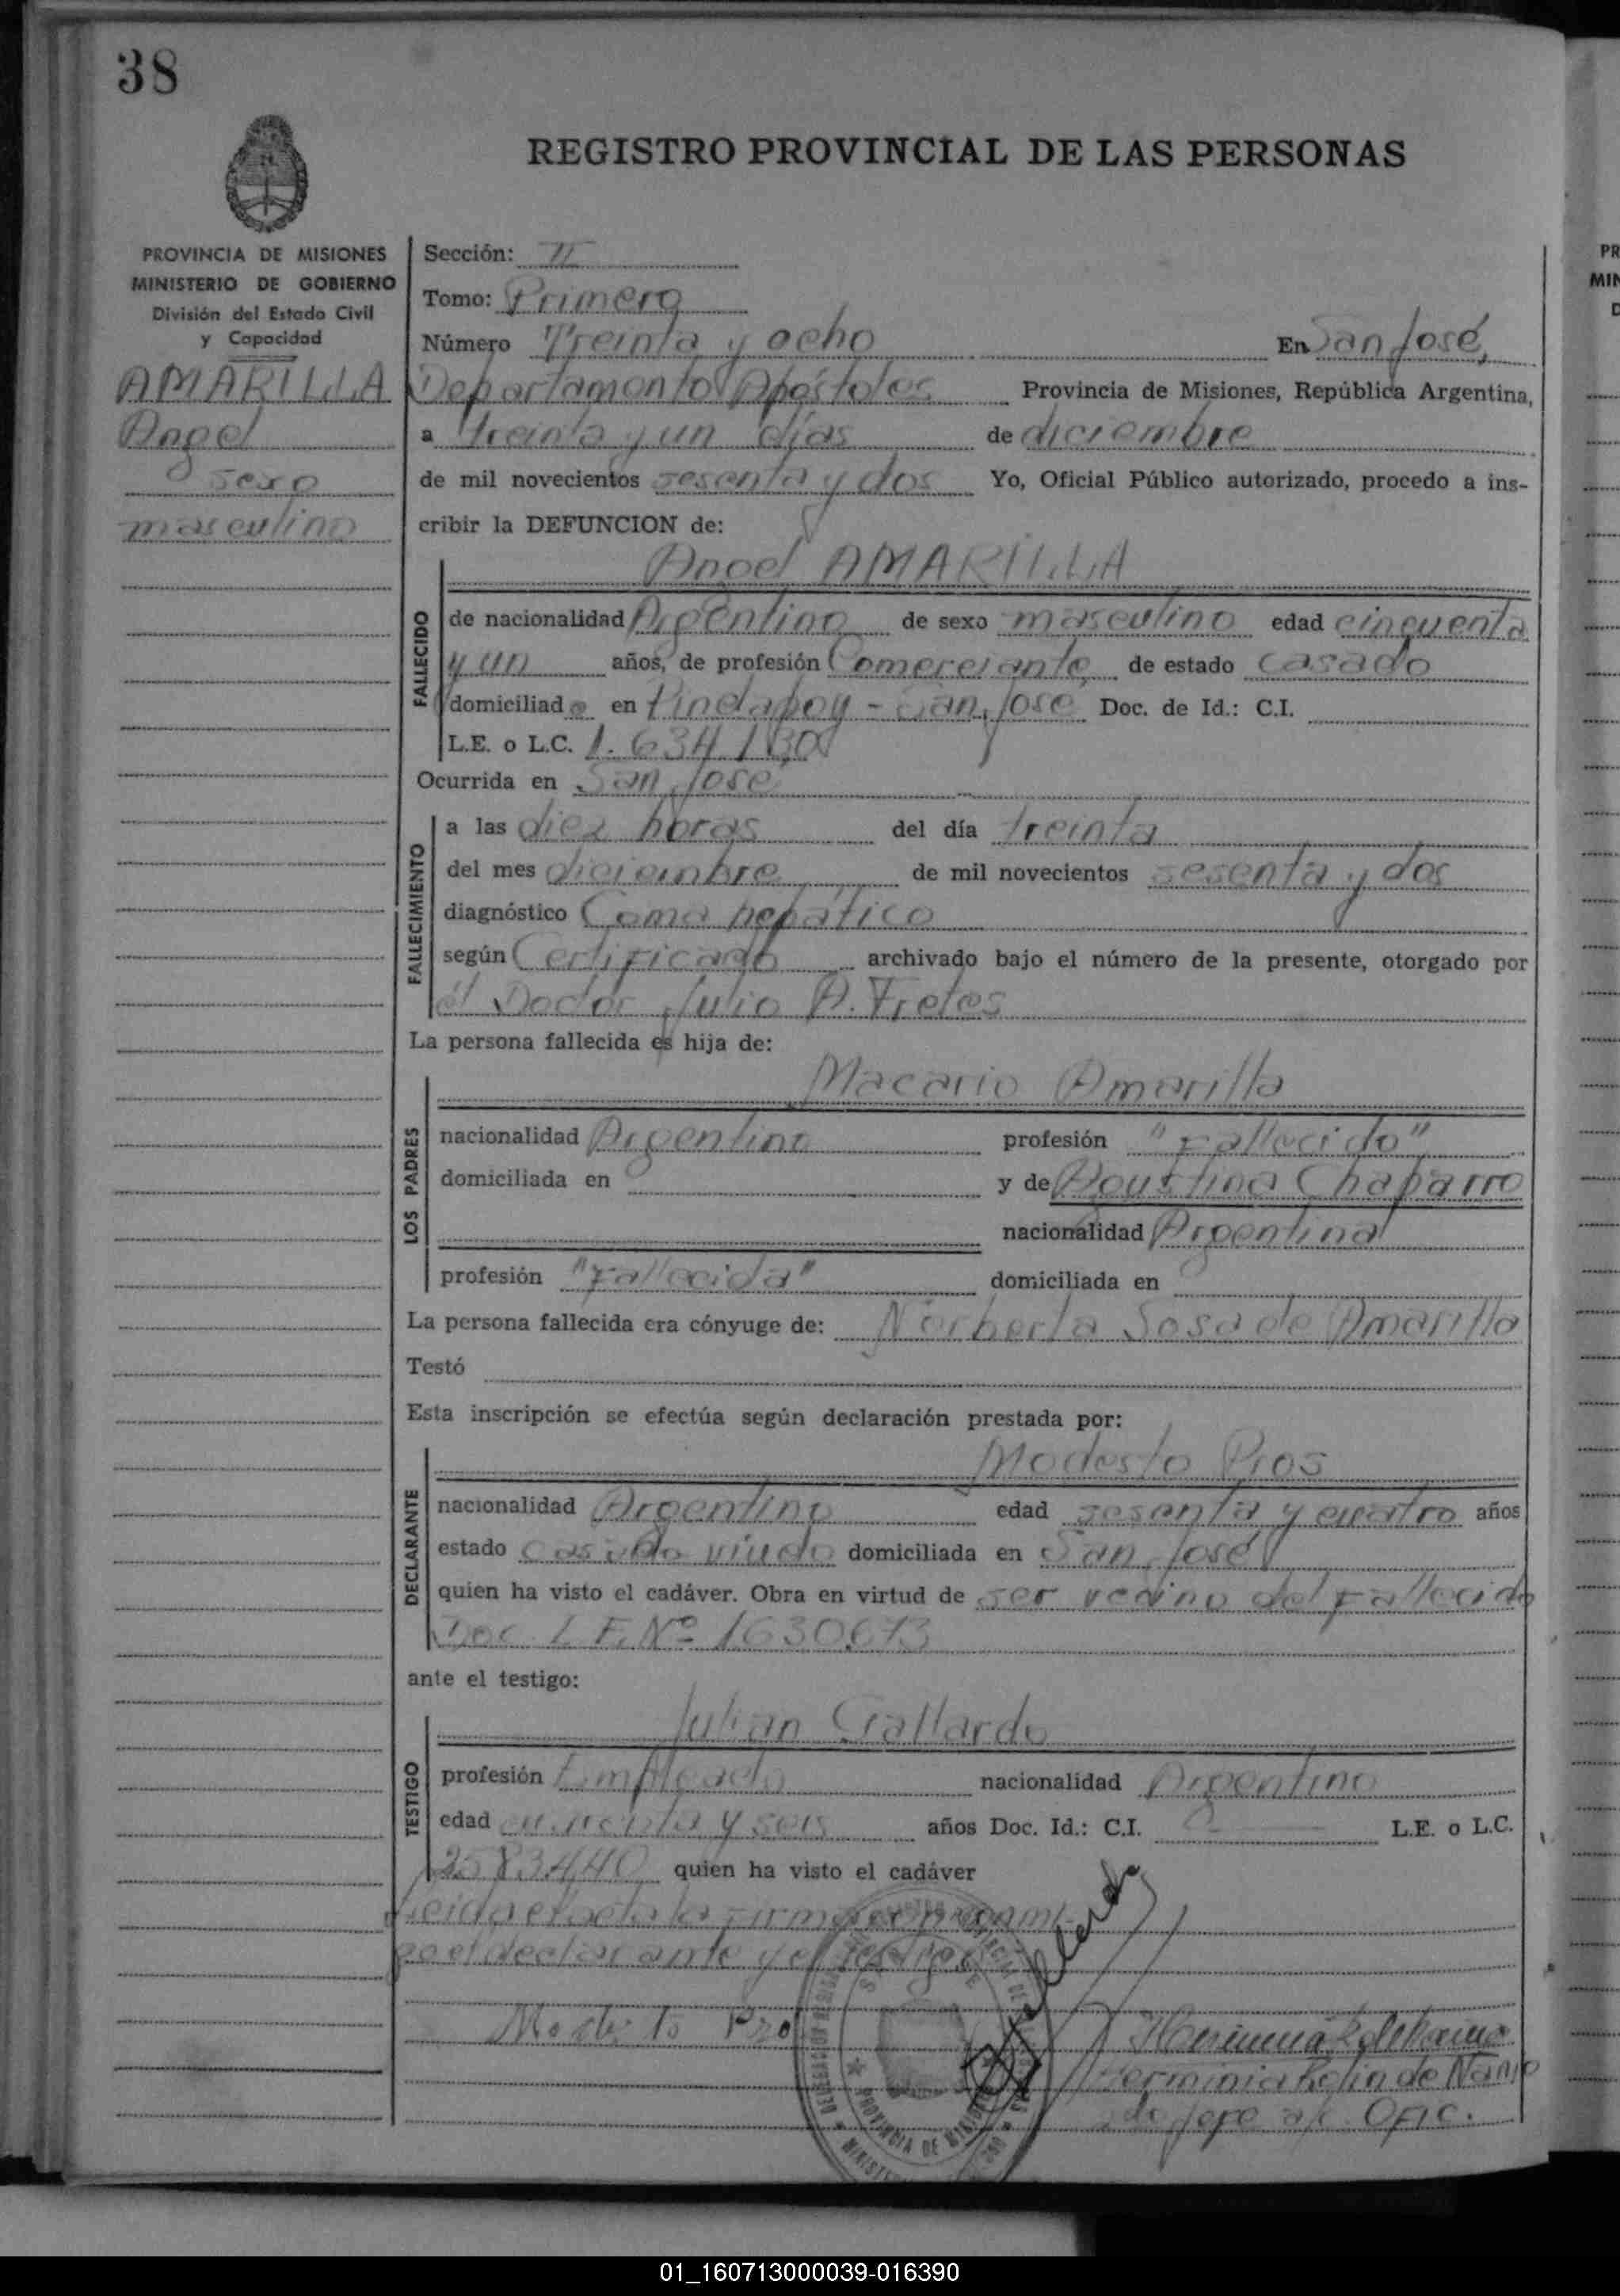 38
REGISTRO PROVINCIAL DE LAS PERSONAS
PROVINCIA DE MISIONES
MINISTERIO DE GOBIERNO
División del Estado Civil
y Capacidad
AMARILLA
Angel
sexo
masculino
Sección: II
Tomo: Primero
Número Treinta y ocho En San José,
Departamento Apóstoles Provincia de Misiones, República Argentina,
a treinta y un días de diciembre
de mil novecientos sesenta y dos Yo, Oficial Público autorizado, procedo a ins-
cribir la DEFUNCION de:
Angel AMARILLA
FALLECIDO
de nacionalidad Argentino de sexo masculino edad cincuenta
y un años, de profesión Comerciante de estado casado
domiciliado en Pindapoy - San José Doc. de Id.: C.I.
L.E. o L.C. 1.634.130
Ocurrida en San José
FALLECIMIENTO
a las diez horas del día treinta
del mes diciembre de mil novecientos sesenta y dos
diagnóstico Coma hepático
según Certificado archivado bajo el número de la presente, otorgado por
el Doctor Julio A. Fretes
La persona fallecida es hija de:
Macario Amarilla
LOS PADRES
nacionalidad Argentino profesión "Fallecido"
domiciliada en y de Agustina Chaparro
nacionalidad Argentina
profesión "Fallecida" domiciliada en
La persona fallecida era cónyuge de: Norberta Sosa de Amarilla
Testó
Esta inscripción se efectúa según declaración prestada por:
Modesto Pros
DECLARANTE
nacionalidad Argentino edad sesenta y cuatro años
estado casado viudo domiciliada en San José
quien ha visto el cadáver. Obra en virtud de ser vecino del Fallecido
Doc. L.E. Nº 1630673
ante el testigo:
Julian Gallardo
TESTIGO
profesión Empleado nacionalidad Argentino
edad cuarenta y seis años Doc. Id.: C.I. L.E. o L.C.
2583440 quien ha visto el cadáver
Leida el acta la firman
el declarante y el testigo
Modesto
PROVINCIA DE
Herminia Rolin de
2do Jefe a/c. Ofic.
PR
MIN
01_160713000039-016390